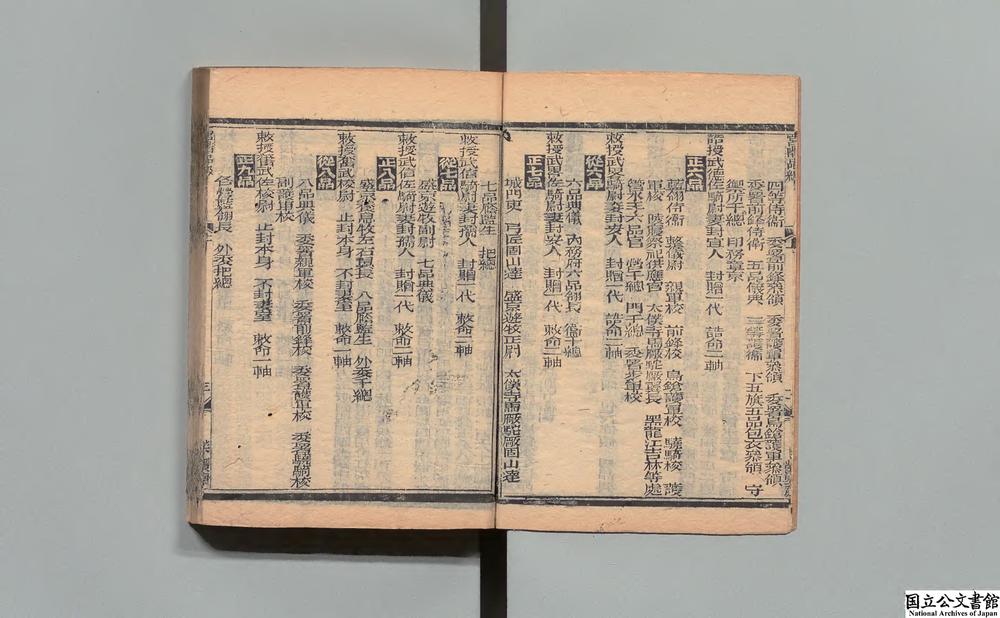 四等侍衞 委署前鋒叅領 委署護軍叅領 委署鳥鎗護軍叅領
委署前鋒侍衞 五品儀典 三等護衞 下五旗五品包衣叅領 守
禦所千總 印務章京
誥授武德佐騎尉妻封宜人 封贈一代 誥命二軸
正六品
藍翎侍衞 整儀尉 親軍校 前鋒校 鳥鎗護軍校 驍騎校 護
軍校 陵寢祭祀供應官 太僕寺馬厰駝厰翼長 黑龍江吉林等處
管水手六品官 營千總 門千總 委署步軍校
從六品
六品典儀 內務府六品翎長 衞千總
敕授武畧騎尉妻封安人 封贈一代 誥命二軸
正七品
敕授武畧佐騎尉妻封安人 封贈一代 敕命二軸
城門吏 弓匠固山達 盛京遊牧正尉 太僕寺馬厰駝厰固山達
七品廕監生 把總
敕授武信騎尉妻封孺人 封贈一代 敕命二軸
從七品
盛京遊牧副尉 七品典儀
敕授武信佐騎尉妻封孺人 封贈一代 敕命二軸
正八品
盛京養息牧左右翼長 八品廕監生 外委千總
敕授奮武校尉 止封本身 不封妻室 敕命一軸
從八品
八品典儀 委署親軍校 委署前鋒校 委署護軍校 委署驍騎校
副護軍校
敕授奮武佐校尉 止封本身 不封妻室 敕命一軸
正九品
各營藍翎長 外委把總
国立公文書館
National Archives of Japan